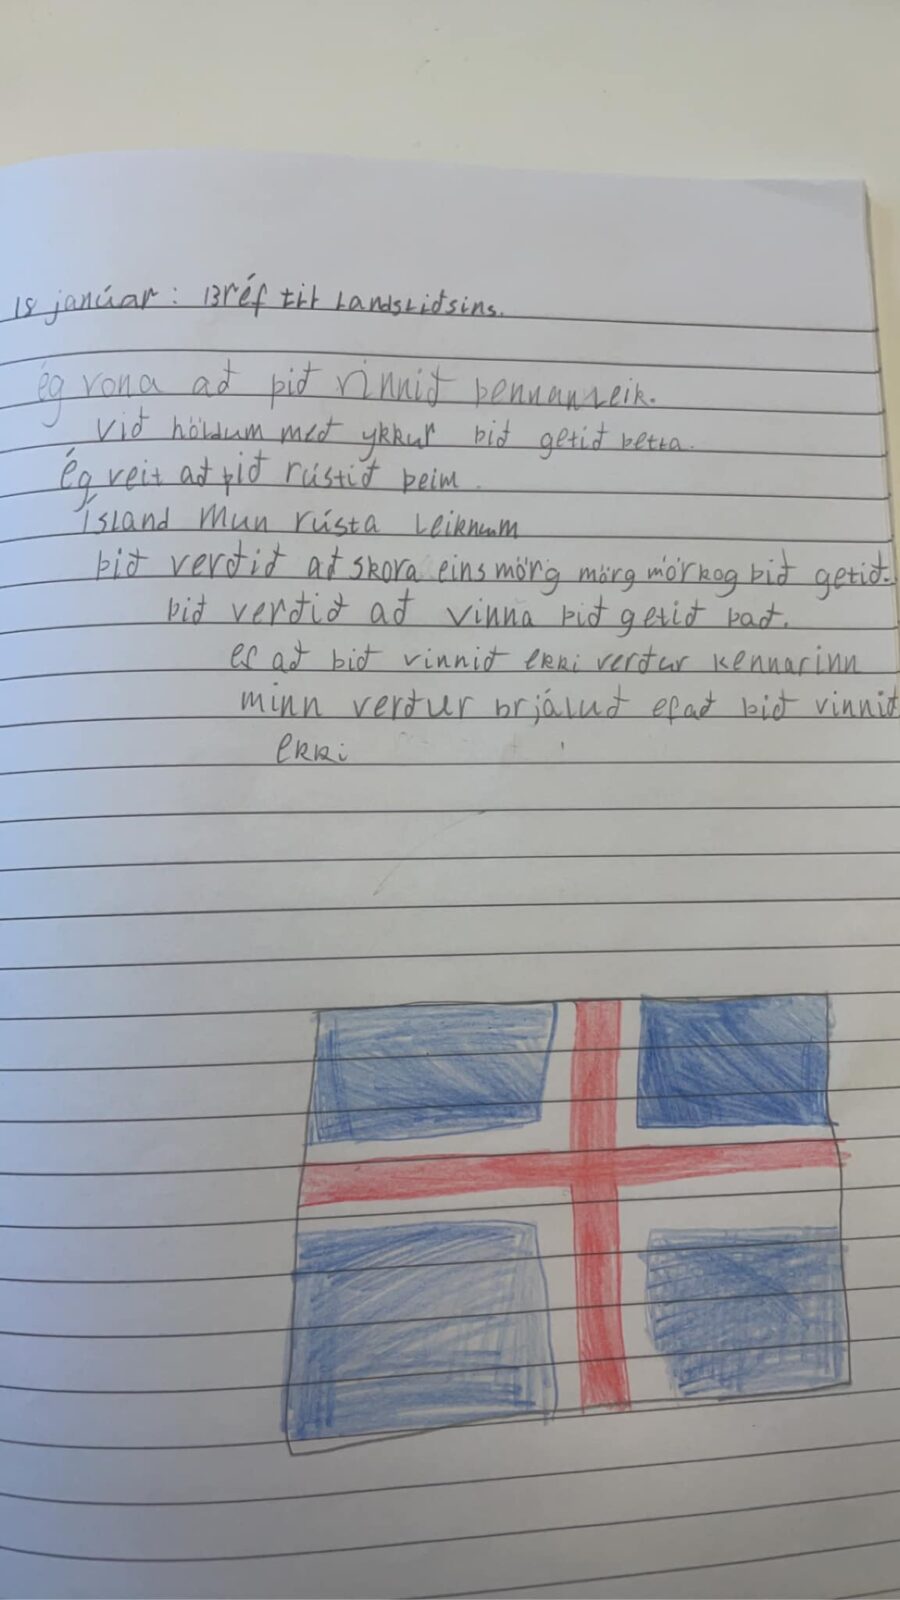 15 janúar: Bréf til Landsliðsins.
ég vona að þið vinnið þennanleik.
Við höldum með ykkur þið getið þetta.
Ég veit að þið rústið þeim.
Ísland Mun rústa Leiknum
þið verðið að skora eins mörg mörg mörkog þið getið.
þið verðið að vinna þið getið það.
ef að þið vinnið ekki verður kennarinn
minn verður brjáluð efað þið vinnið
ekki